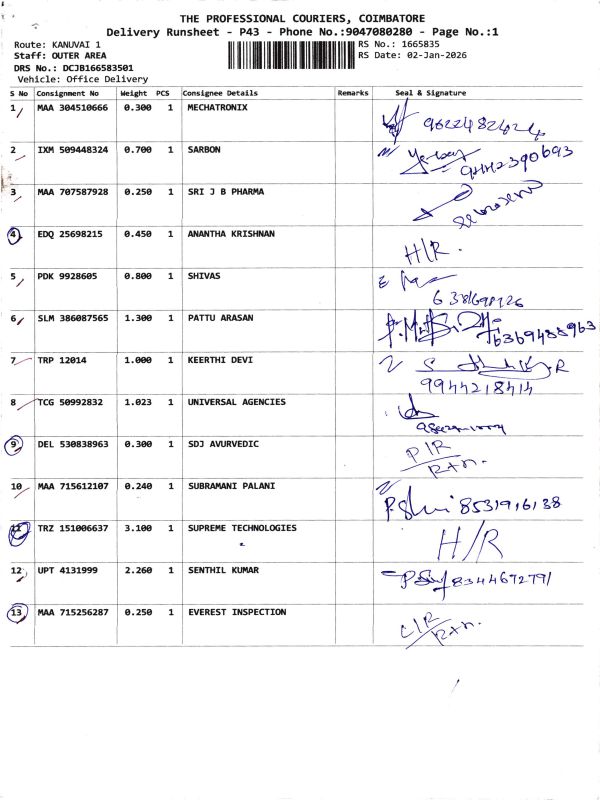 THE PROFESSIONAL COURIERS, COIMBATORE
Delivery Runsheet - P43 - Phone No.:9047080280 - Page No.:1
Route: KANUVAI 1 RS No.: 1665835
Staff: OUTER AREA RS Date: 02-Jan-2026
DRS No.: DCJB166583501
Vehicle: Office Delivery
S No Consignment No Weight PCS Consignee Details Remarks Seal & Signature
1 MAA 304510666 0.300 1 MECHATRONIX
2 IXM 509448324 0.700 1 SARBON
3 MAA 707587928 0.250 1 SRI J B PHARMA
4 EDQ 25698215 0.450 1 ANANTHA KRISHNAN H/R.
5 PDK 9928605 0.800 1 SHIVAS
6 SLM 386087565 1.300 1 PATTU ARASAN 6369488963
7 TRP 12014 1.000 1 KEERTHI DEVI
9944218414
8 TCG 50992832 1.023 1 UNIVERSAL AGENCIES
9 DEL 530838963 0.300 1 SDJ AYURVEDIC
10 MAA 715612107 0.240 1 SUBRAMANI PALANI 8531916138
11 TRZ 151006637 3.100 1 SUPREME TECHNOLOGIES H/R
12 UPT 4131999 2.260 1 SENTHIL KUMAR 8344672791
13 MAA 715256287 0.250 1 EVEREST INSPECTION